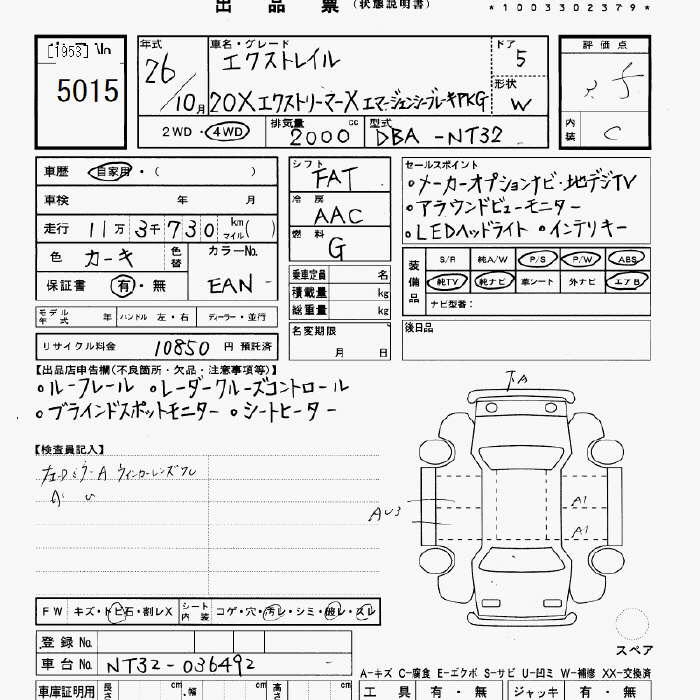 出 品 票 (状態説明書)
*1003302379*
[1953] No
5015
年式 車名・グレード ドア 評 価 点
26 エクストレイル 5
形状
/10月 20X エクストリーマーX エマージェンシーブレーキPKG W
内装 C
2WD ・ 4WD 排気量 2000 cc 型式 DBA -NT32
車歴 自家用 ・( )
車検 年 月
走行 11万 3千 730 km マイル( )
色 カーキ 色替 カラーNo.
保証書 有 ・ 無 EAN
モデル年式 年 ハンドル 左・右 ディーラー・並行
リサイクル料金 10850 円 預託済
シフト FAT
冷房 AAC
燃料 G
乗車定員 名
積載量 kg
総重量 kg
名変期限
月 日
セールスポイント
○メーカーオプションナビ・地デジTV
○アラウンドビューモニター
○LEDヘッドライト ○インテリキー
装備品 S/R 純A/W P/S P/W ABS
純TV 純ナビ 車シート 外ナビ エアB
ナビ型番:
後日品
【出品店申告欄(不良箇所・欠品・注意事項等)】
○ルーフレール ○レーダークルーズコントロール
○ブラインドスポットモニター ○シートヒーター
【検査員記入】
ウィンカーレンズ
A1
A1
スペア
FW キズ・トビ石・割レX シート内装 コゲ・穴・汚レ・シミ・破レ・スレ
登録 No.
車台 No. NT32-036492
A-キズ C-腐食 E-エクボ S-サビ U-凹ミ W-補修 XX-交換済
車庫証明用 長さ cm ・幅 cm 高さ cm 工 具 有 ・ 無 ジャッキ 有 ・ 無